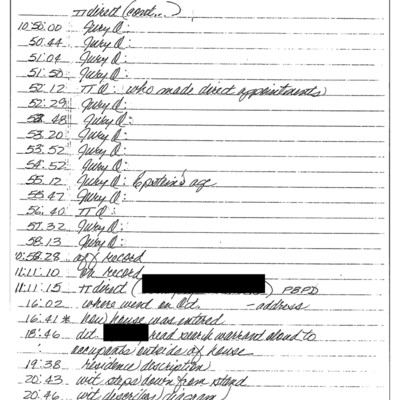 π direct (cont...)
10:50:00 Jury Q:
50:44 Jury Q:
51:04 Jury Q:
51:50 Jury Q:
52:12 π Q: who made direct appointments
52:29 Jury Q:
52:48 Jury Q:
53:20 Jury Q:
53:52 Jury Q:
54:52 Jury Q:
55:12 Jury Q: Epstein's age
55:47 Jury Q:
56:40 π Q:
57:32 Jury Q:
58:13 Jury Q:
10:58:28 off record
11:11:10 on record
11:11:15 π direct ( ) PBPD
16:02 where went on - address
16:41 * how house was entered
18:46 det read search warrant aloud to
occupants outside of house
19:38 residence description)
20:43 wit steps down from stand
20:46 wit describes diagram